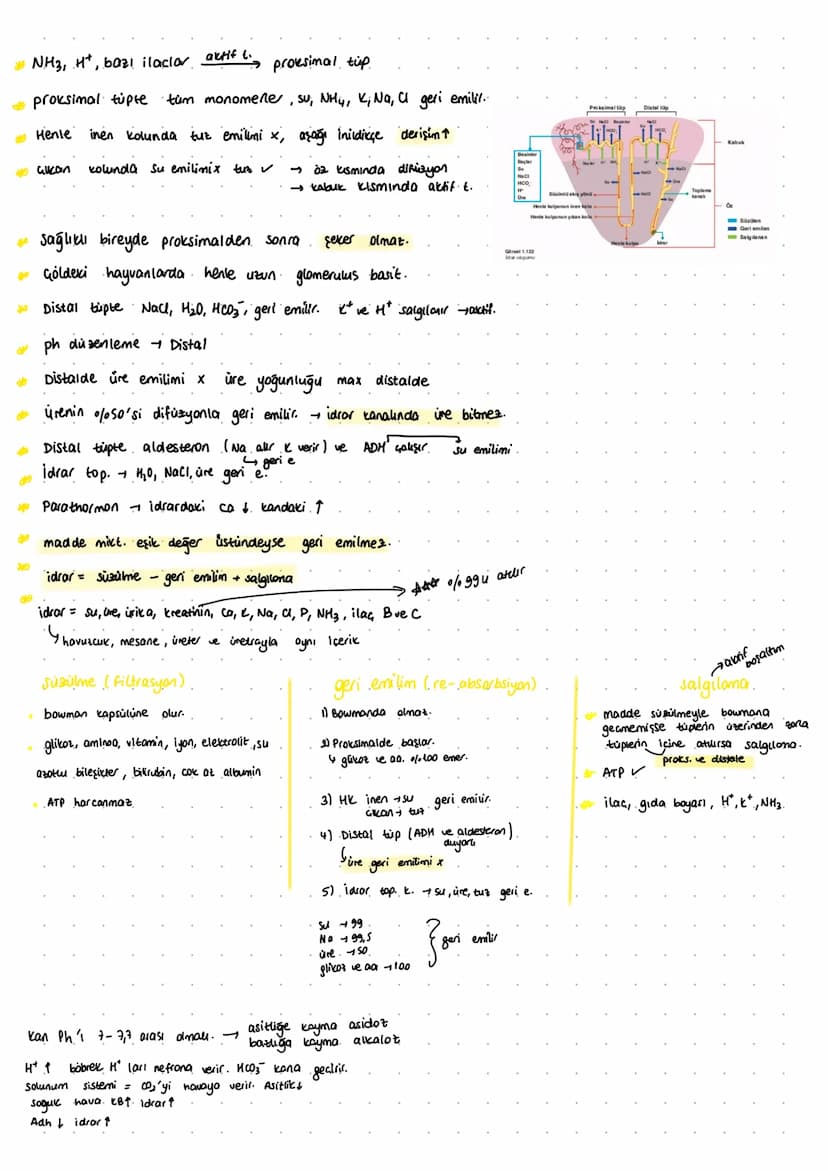 NH3, H+, bazı ilaçlar aktif t. → proksimal tüp
proksimal tüpte tüm monomerler, su, NH4, K, Na, Cl geri emilir.
Henle inen kolunda tuz emilimi x, aşağı inildikçe derişim ↑
çıkan kolunda su emilimi x tuz ✓ → öz kısmında difüzyon
→ kabuk kısmında aktif t.
Proksimal tüp
Distal tüp
Kabuk
Besinler
İlaçlar
Su
NaCl
HCO3
H+
Üre
Süzüntü akış yönü
Henle kulpunun inen kolu
Henle kulpunun çıkan kolu
Toplama kanalı
Öz
Henle kulpu
İdrar
Süzülen
Geri emilen
Salgılanan
Görsel 1.132
İdrar oluşumu
sağlıklı bireyde proksimalden sonra şeker olmaz.
Çöldeki hayvanlarda henle uzun glomerulus basit.
Distal tüpte NaCl, H2O, HCO3-, geri emilir. K+ ve H+ salgılanır → aktif.
ph düzenleme → Distal
Distalde üre emilimi x üre yoğunluğu max distalde
ürenin %50'si difüzyonla geri emilir. → idrar kanalında üre bitmez.
Distal tüpte aldesteron (Na alır K verir) ve ADH çalışır. su emilimi
↳ geri e
İdrar top. → H2O, NaCl, üre geri e.
Parathormon → idrardaki ca ↓ kandaki ↑
madde mikt. eşik değer üstündeyse geri emilmez.
idrar = süzülme - geri emilim + salgılama
%99u atılır
idrar = su, üre, ürika, kreatinin, Ca, K, Na, Cl, P, NH3, ilaç, B ve C
↳ havuzcuk, mesane, üreter ve üretrayla aynı içerik
süzülme (filtrasyon)
bowman kapsülüne olur.
glikoz, aminoa, vitamin, iyon, elektrolit, su
azotlu bileşikler, bilirubin, çok az albumin
ATP harcanmaz
geri emilim (re-absorbsiyon)
1) Bowmanda olmaz.
2) Proksimalde başlar.
↳ glikoz ve aa. %100 emer.
3) HK inen → su geri emilir.
çıkan → tuz
4) Distal tüp (ADH ve aldesteron)
duyarlı
↳ üre geri emilimi x
5) idrar top. k. → su, üre, tuz geri e.
su → 99
Na → 99,5
üre → 50
glikoz ve aa → 100
geri emilir
→ aktif boşaltım
salgılama
madde süzülmeyle bowmana
geçmemişse tüplerin üzerinden zorla
tüplerin içine atılırsa salgılama.
proks. ve distale
ATP ✓
ilaç, gıda boyası, H+, K+, NH3
Kan Ph'ı 7-7,7 arası olmalı. → asitliğe kayma asidoz
bazlığa kayma alkaloz
H+ ↑ böbrek H+ ları nefrona verir. HCO3- kana geçirir.
solunum sistemi = CO2'yi havaya verir. Asitlik ↓
soğuk hava KB↑ idrar↑
Adh ↓ idrar ↑